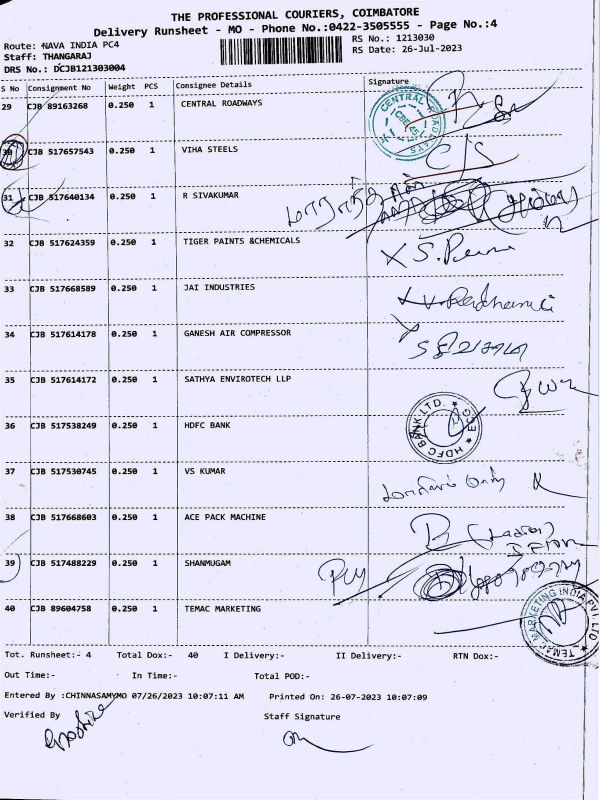 THE PROFESSIONAL COURIERS, COIMBATORE
Delivery Runsheet - MO - Phone No.:0422-3505555 - Page No.:4
Route: NAVA INDIA PC4 RS No.: 1213030
Staff: THANGARAJ RS Date: 26-Jul-2023
DRS No.: DCJB121303004
S No Consignment No Weight PCS Consignee Details Signature
29 CJB 89163268 0.250 1 CENTRAL ROADWAYS
CENTRAL ROADWAYS
30 CJB 517657543 0.250 1 VIHA STEELS
31 CJB 517640134 0.250 1 R SIVAKUMAR
32 CJB 517624359 0.250 1 TIGER PAINTS &CHEMICALS
33 CJB 517668589 0.250 1 JAI INDUSTRIES
34 CJB 517614178 0.250 1 GANESH AIR COMPRESSOR
35 CJB 517614172 0.250 1 SATHYA ENVIROTECH LLP
36 CJB 517538249 0.250 1 HDFC BANK
HDFC BANK LTD.
37 CJB 517530745 0.250 1 VS KUMAR
38 CJB 517668603 0.250 1 ACE PACK MACHINE
39 CJB 517488229 0.250 1 SHANMUGAM
40 CJB 89604758 0.250 1 TEMAC MARKETING
TEMAC MARKETING INDIA PVT. LTD
Tot. Runsheet:- 4 Total Dox:- 40 I Delivery:- II Delivery:- RTN Dox:-
Out Time:- In Time:- Total POD:-
Entered By :CHINNASAMYMO 07/26/2023 10:07:11 AM Printed On: 26-07-2023 10:07:09
Verified By Staff Signature